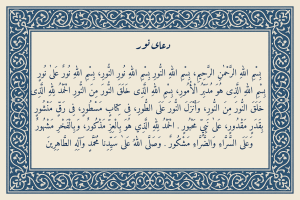 دعای نور
بِسْمِ اللهِ الرَّحْمنِ الرَّحِیمِ، بِسْمِ اللهِ النُّورِ بِسْمِ اللهِ نُورِ النُّورِ، بِسْمِ اللهِ نُورٌ عَلى نُورٍ
بِسْمِ اللهِ الَّذِی هُوَ مُدَبِّرُ الْأُمُورِ، بِسْمِ اللهِ الَّذِی خَلَقَ النُّورَ مِنَ النُّورِ الْحَمْدُ لِلّهِ الَّذِی
خَلَقَ النُّورَ مِنَ النُّورِ، وَأَنْزَلَ النُّورَ عَلَى الطُّورِ، فِی كِتابٍ مَسْطُورٍ، فِی رَقٍّ مَنْشُورٍ
بِقَدَرٍ مَقْدُورٍ، عَلى نَبِیٍّ مَحْبُورٍ. الْحَمْدُ لِلّهِ الَّذِی هُوَ بِالْعِزِّ مَذْكُورٌ، وَبِالْفَخْرِ مَشْهُورٌ
وَعَلَى السَّرَّاءِ وَالضَّرَّاءِ مَشْكُورٌ. وَصَلَّى اللهُ عَلَى سَیِّدِنا مُحَمَّدٍ وَآلِهِ الطَّاهِرِینَ